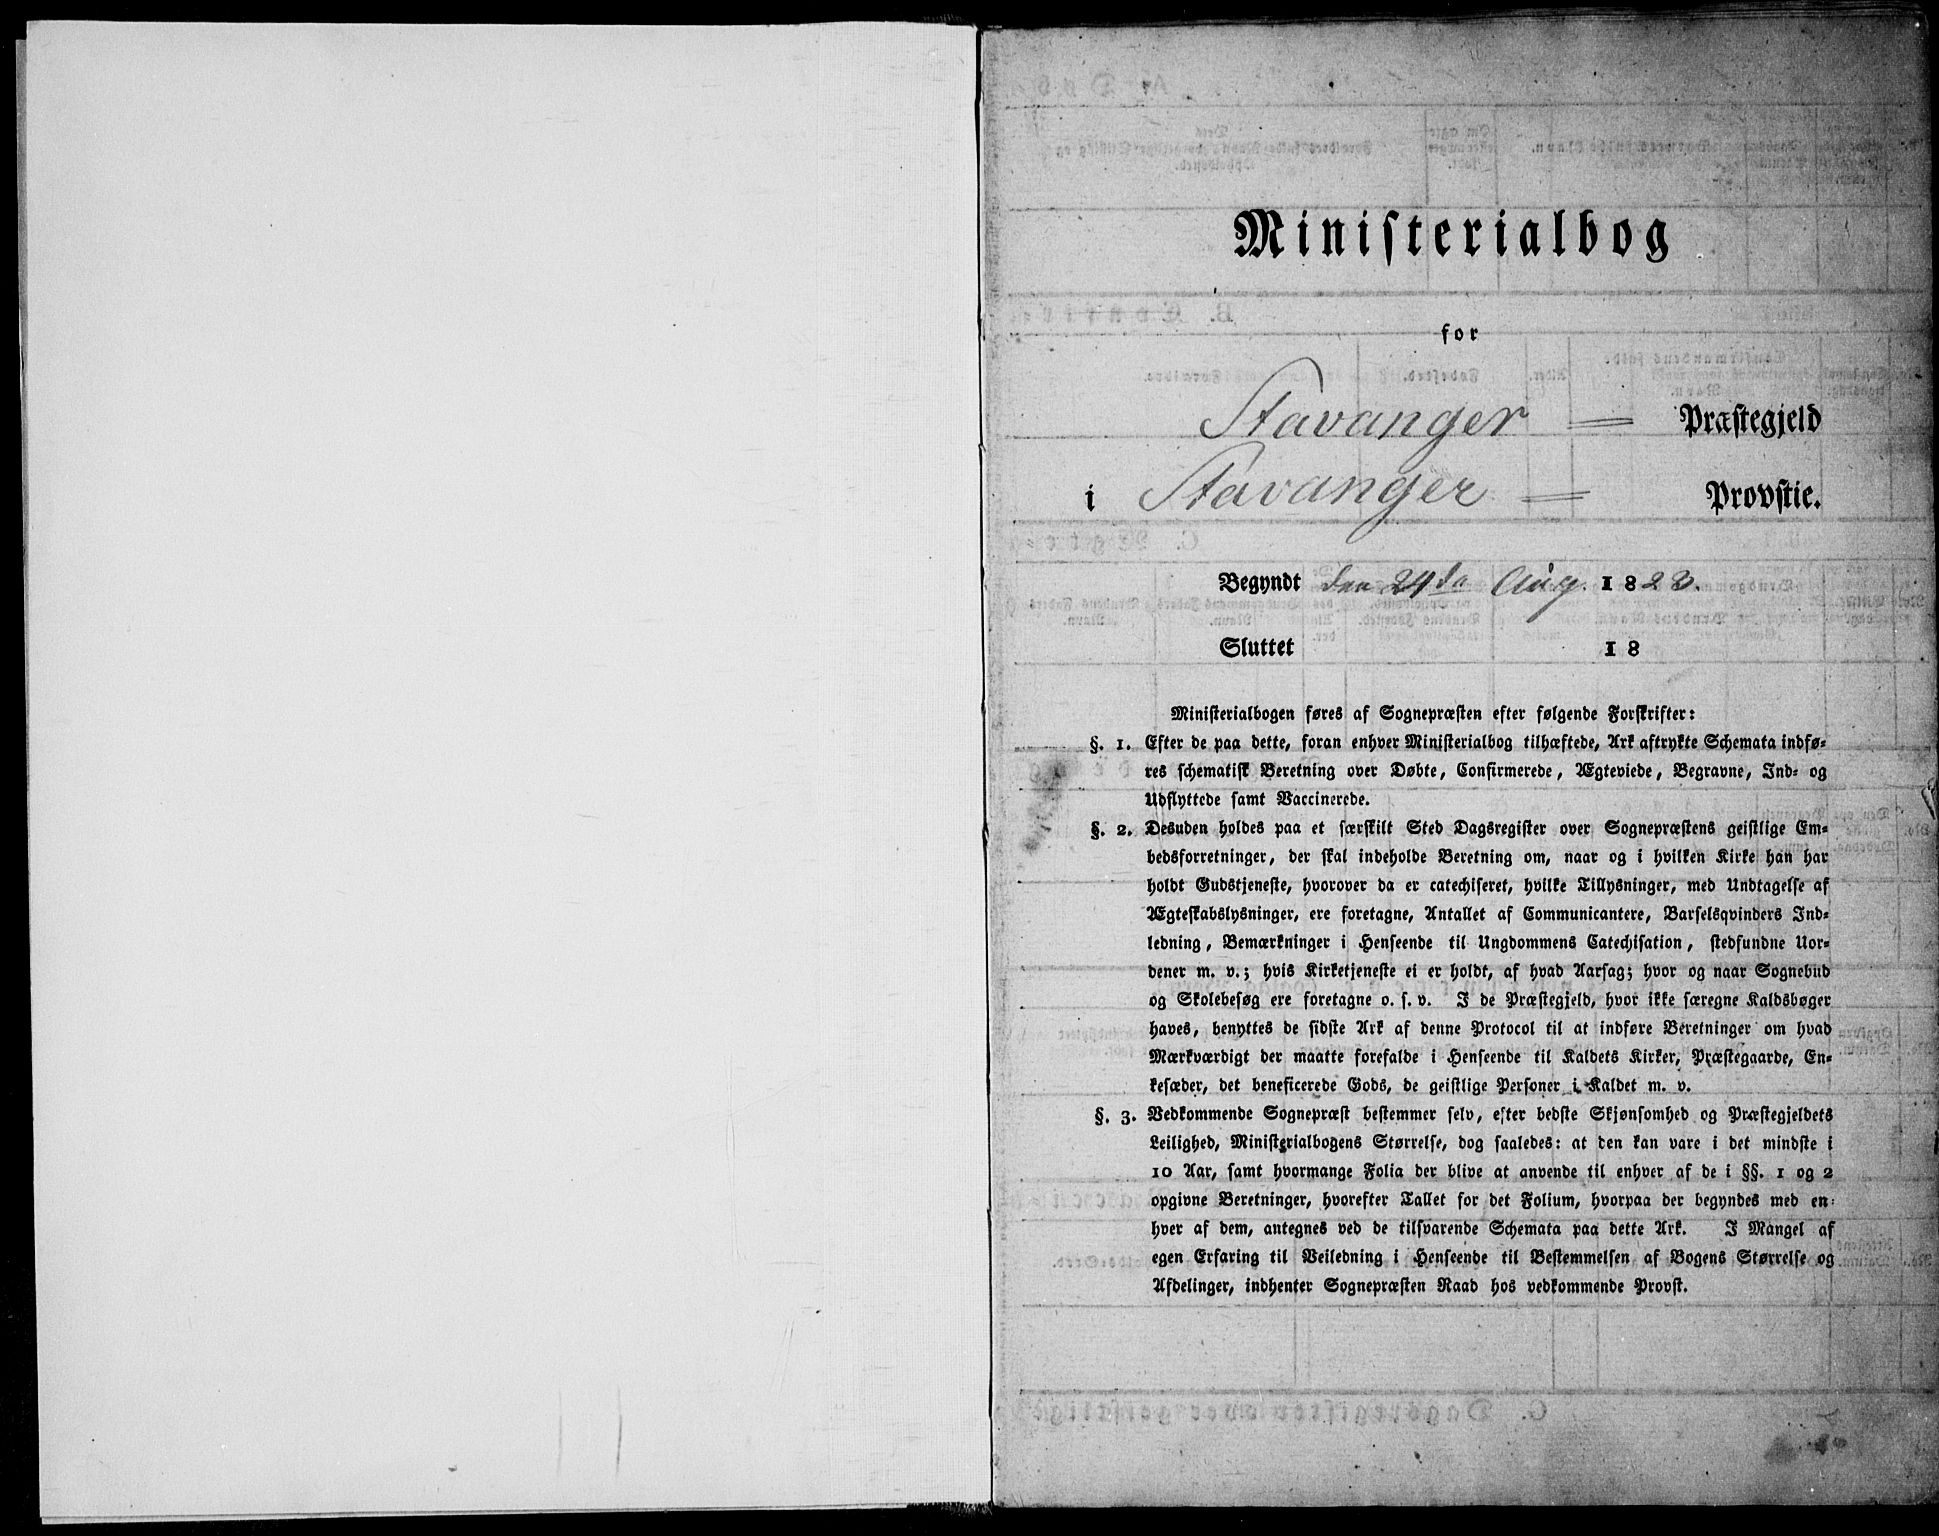 Ministerialbog
for
Stavanger = Præstegjeld
i Stavanger = Provstie.
Begyndt den 24de Aug. 1823.
Sluttet 18
Ministerialbogen føres af Sognepræsten efter følgende Forskrifter:
§. 1. Efter de paa dette, foran enhver Ministerialbog tilhæftede, Ark aftrykte Schemata indfø-
res schematisk Beretning over Døbte, Confirmerede, Ægteviede, Begravne, Ind- og
Udflyttede samt Vaccinerede.
§. 2. Desuden holdes paa et særskilt Sted Dagsregister over Sognepræstens geistlige Em-
bedsforretninger, der skal indeholde Beretning om, naar og i hvilken Kirke han har
holdt Gudstjeneste, hvorover da er catechiseret, hvilke Tillysninger, med Undtagelse af
Ægteskabslysninger, ere foretagne, Antallet af Communicantere, Barselsqvinders Ind-
ledning, Bemærkninger i Henseende til Ungdommens Catechisation, stedfundne Uor-
dener m. v.; hvis Kirketjeneste ei er holdt, af hvad Aarsag; hvor og naar Sognebud
og Skolebesøg ere foretagne o. s. v. I de Præstegjeld, hvor ikke særegne Kaldsbøger
haves, benyttes de sidste Ark af denne Protocol til at indføre Beretninger om hvad
Mærkværdigt der maatte forefalde i Henseende til Kaldets Kirker, Præstegaarde, En-
kesæder, det beneficerede Gods, de geistlige Personer i Kaldet m. v.
§. 3. Vedkommende Sognepræst bestemmer selv, efter bedste Skjønsomhed og Præstegjeldets
Leilighed, Ministerialbogens Størrelse, dog saaledes: at den kan vare i det mindste i
10 Aar, samt hvormange Folia der blive at anvende til enhver af de i §§. 1 og 2
opgivne Beretninger, hvorefter Tallet for det Folium, hvorpaa der begyndes med en-
hver af dem, antegnes ved de tilsvarende Schemata paa dette Ark. I Mangel af
egen Erfaring til Veiledning i Henseende til Bestemmelsen af Bogens Størrelse og
Afdelinger, indhenter Sognepræsten Raad hos vedkommende Provst.